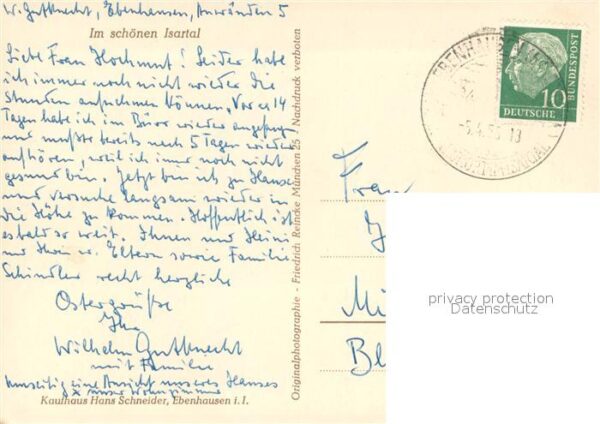 W. Gutknecht, Ebenhausen, Anwänden 5
Im schönen Isartal
Liebe Frau Hochmut! Leider habe
ich immer noch nicht wieder die
Stunden aufnehmen können. Vor 14
Tagen habe ich im Büro wieder angefangen
und mußte bereits nach 5 Tagen wieder
aufhören, weil ich immer noch nicht
gesund bin. Jetzt bin ich zu Hause
und versuche langsam wieder in
die Höhe zu kommen. Hoffentlich ist
es bald so weit. Ihnen und Heini
und Ihren w. Eltern sowie Familie
Schindler recht herzliche
Ostergrüße
Ihr
Wilhelm Gutknecht
mit Familie
Umseitig eine Ansicht unseres Hauses
x unser Wohnzimmer
Kaufhaus Hans Schneider, Ebenhausen i. I.
Originalphotographie - Friedrich Reincke München 25 / Nachdruck verboten
EBENHAUSEN
-5.4.55 13
DEUTSCHE
BUNDESPOST
10
Frau
privacy protection
Datenschutz